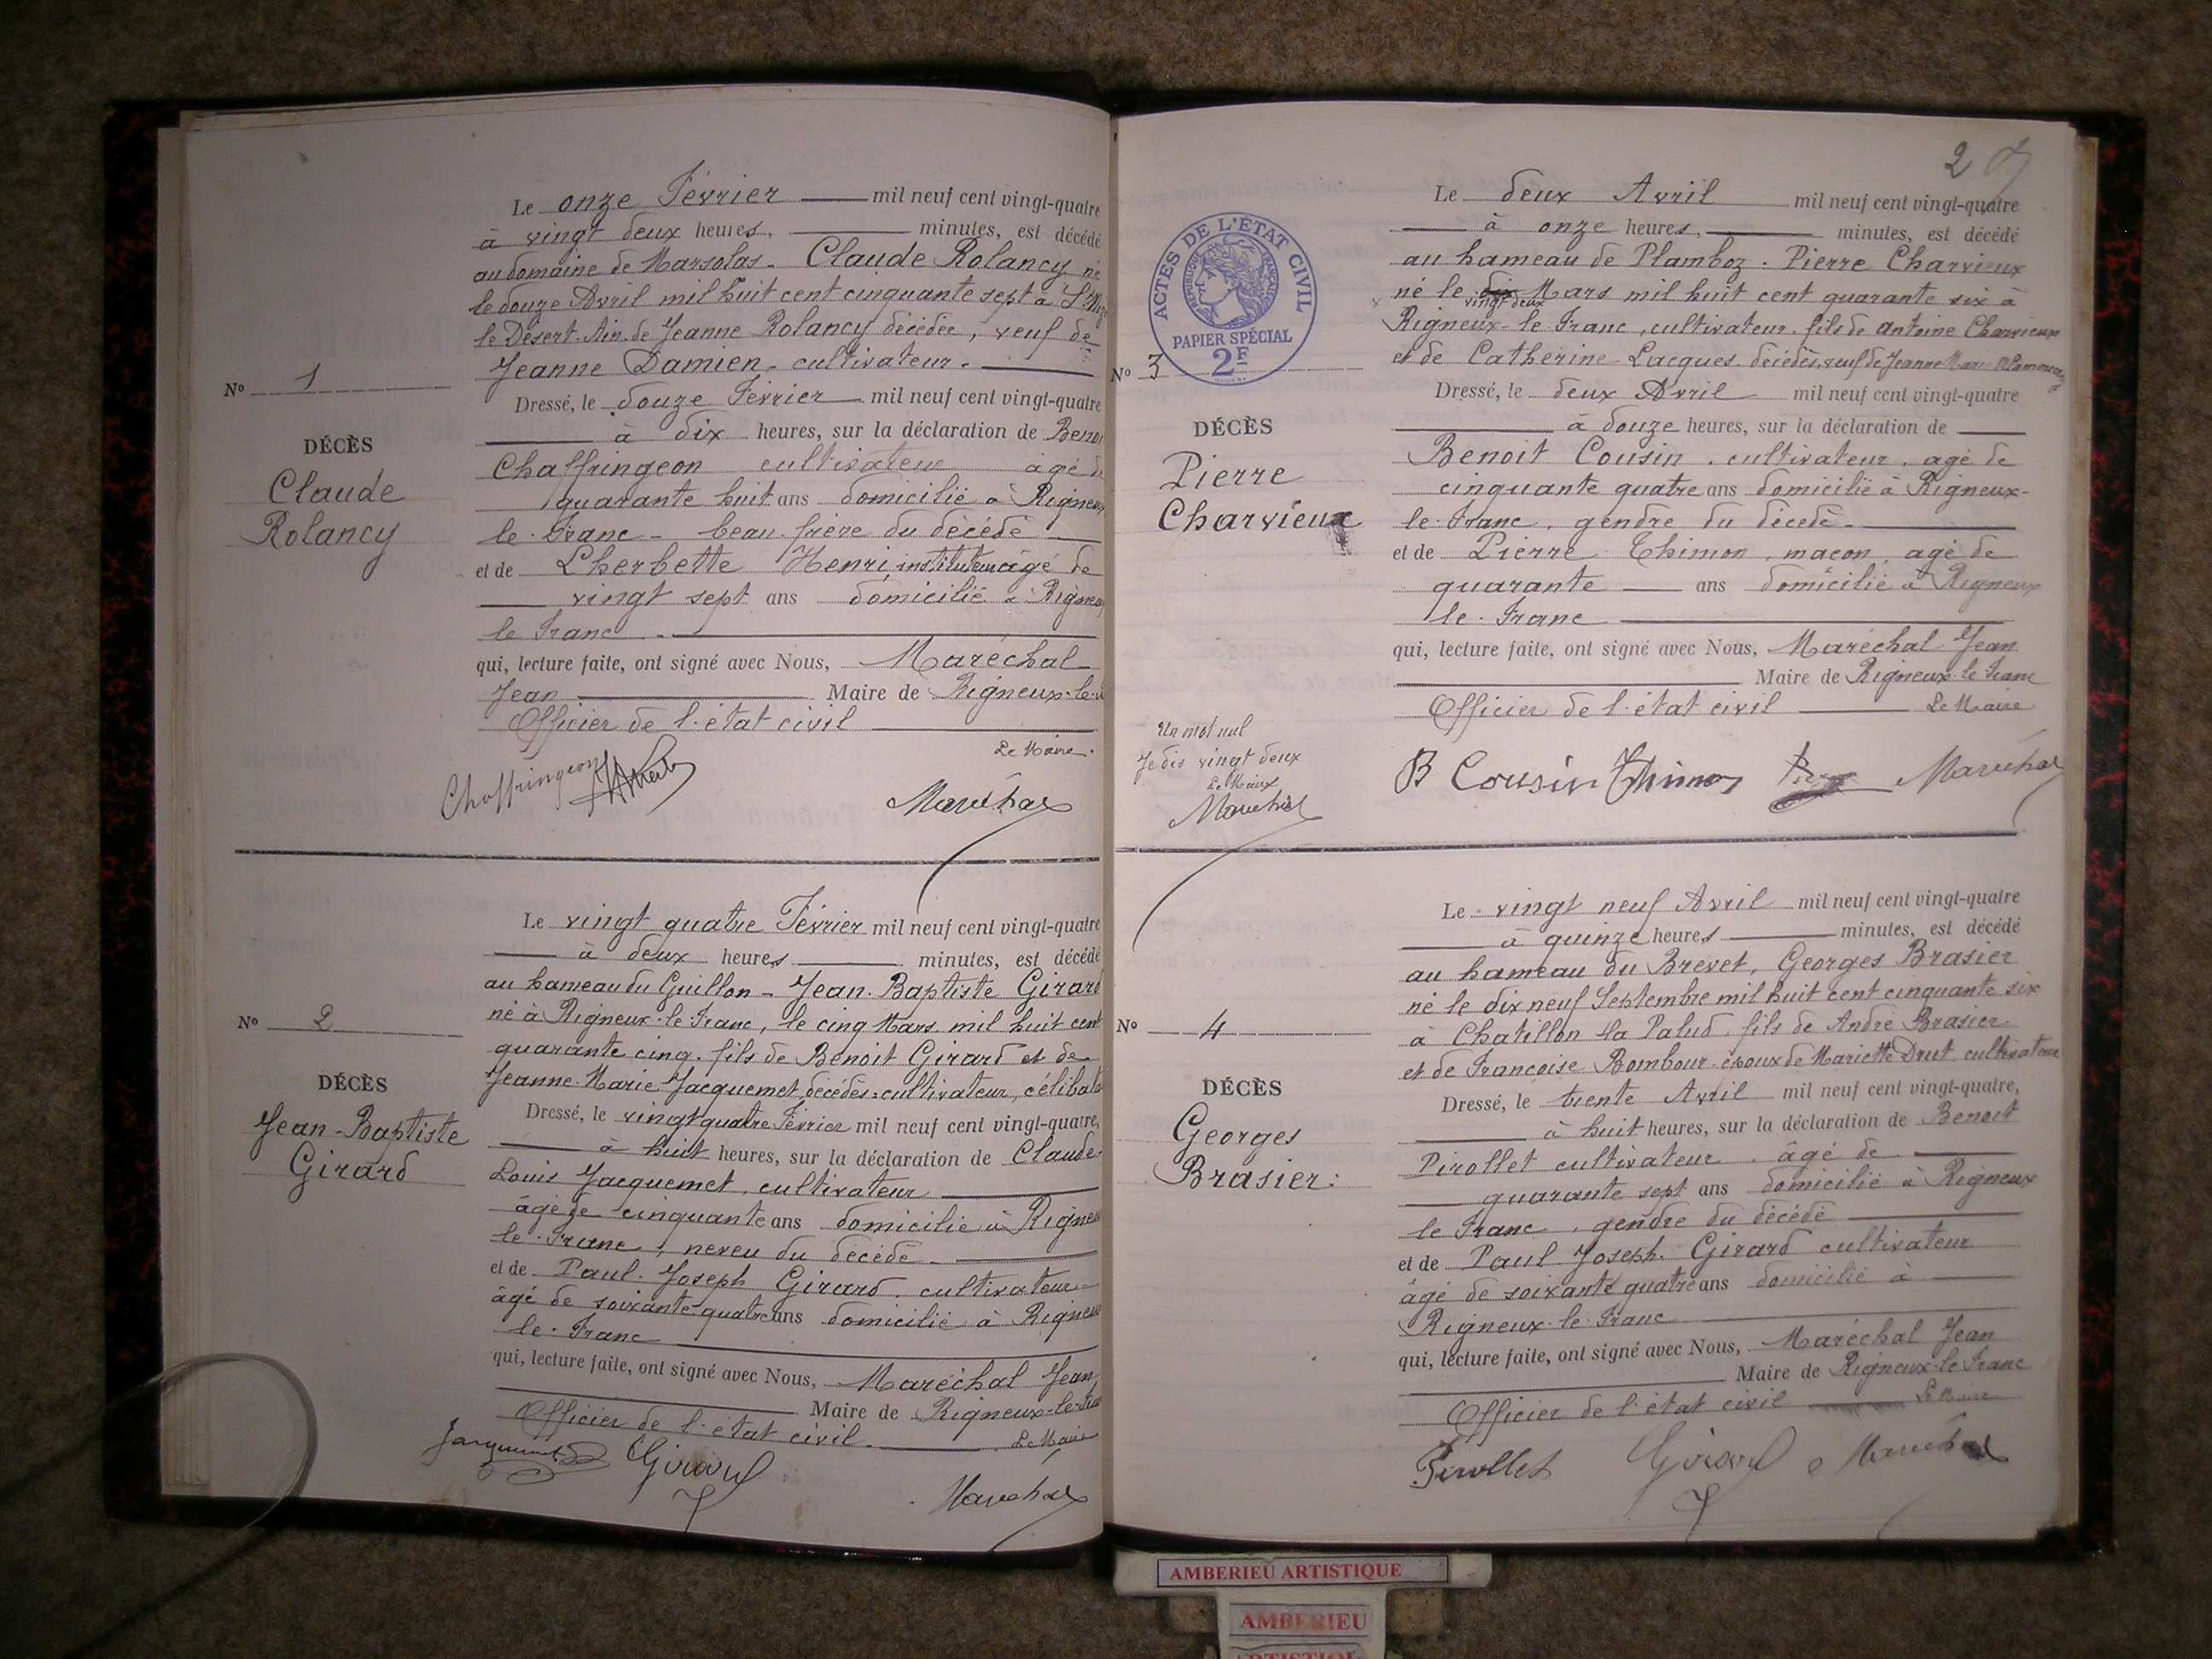 Le onze Février mil neuf cent vingt-quatre
à vingt deux heures, minutes, est décédé
au domaine de Marsolas - Claude Rolancy né
le douze Avril mil huit cent cinquante sept à St
le Désert. Ain. de Jeanne Rolancy décédée, veuf de
Jeanne Damien. cultivateur.
No 1
Dressé, le douze Février mil neuf cent vingt-quatre
à dix heures, sur la déclaration de Benoi
DÉCÈS
Chaffringeon cultivateur âgé d
Claude
quarante huit ans domicilié à Rigneux
Rolancy
le Franc - beau-frère du décédé
et de Lherbette Henri instituteur âgé de
vingt sept ans domicilié à Rigneu
le Franc.
qui, lecture faite, ont signé avec Nous, Maréchal
Jean Maire de Rigneux-le-
Officier de l'état civil
Le Maire.
Chaffringeon
Maréchal
Le vingt quatre Février mil neuf cent vingt-quatre
à deux heures minutes, est décédé
au hameau du Guillon - Jean-Baptiste Girard
né à Rigneux-le-Franc, le cinq Mars mil huit cent
No 2
quarante cinq. fils de Benoit Girard et de
Jeanne-Marie Jacquemet décédés - cultivateur, célibata
DÉCÈS
Dressé, le vingt quatre Février mil neuf cent vingt-quatre,
Jean-Baptiste
à huit heures, sur la déclaration de Claude-
Girard
Louis Jacquemet, cultivateur
âgé de cinquante ans domicilié à Rigneu
le-Franc, neveu du décédé
et de Paul-Joseph Girard, cultivateur
âgé de soixante-quatre ans domicilié à Rigneu
le-Franc
qui, lecture faite, ont signé avec Nous, Maréchal Jean,
Maire de Rigneux-le-Fran
Officier de l'état civil. Le Maire
Jacquemet Girard
Maréchal
2
Le deux Avril mil neuf cent vingt-quatre
à onze heures, minutes, est décédé
au hameau de Plamboz. Pierre Charvieux
né le dix Mars mil huit cent quarante six à
vingt deux
Rigneux-le-Franc, cultivateur, fils de Antoine Charvieux
et de Catherine Lacques décédés, veuf de Jeanne Marie
ACTES DE L'ÉTAT CIVIL
RÉPUBLIQUE FRANÇAISE
PAPIER SPÉCIAL
2F
No 3
Dressé, le deux Avril mil neuf cent vingt-quatre
DÉCÈS
à douze heures, sur la déclaration de
Pierre
Benoit Cousin. cultivateur. agé de
Charvieux
cinquante quatre ans domicilié à Rigneux-
le-Franc, gendre du décédé
et de Pierre Thimon, maçon, agé de
quarante ans domicilié à Rigneux
le-Franc
qui, lecture faite, ont signé avec Nous, Maréchal Jean
Maire de Rigneux-le-Franc
Officier de l'état civil Le Maire
Un mot nul
Je dis vingt deux
Le Maire
Maréchal
B Cousin Thimon Maréchal
Le vingt neuf Avril mil neuf cent vingt-quatre
à quinze heures minutes, est décédé
au hameau du Brevet, Georges Brasier
né le dix neuf Septembre mil huit cent cinquante six
No 4
à Chatillon la Palud, fils de André Brasier
et de Françoise Bombour-époux de Mariette Drut, cultivateur
DÉCÈS
Dressé, le trente Avril mil neuf cent vingt-quatre,
Georges
à huit heures, sur la déclaration de Benoit
Brasier.
Pirollet cultivateur. âgé de
quarante sept ans domicilié à Rigneux
le Franc, gendre du décédé
et de Paul-Joseph Girard cultivateur
âgé de soixante quatre ans domicilié à
Rigneux-le-Franc
qui, lecture faite, ont signé avec Nous, Maréchal Jean
Maire de Rigneux-le-Franc
Officier de l'état civil Le Maire
Pirollet Girard Maréchal
AMBERIEU ARTISTIQUE
AMBERIEU
ARTISTIQUE